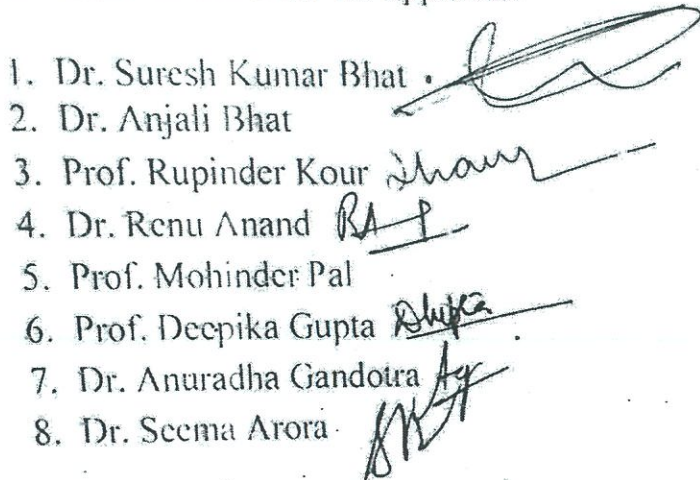 1. Dr. Suresh Kumar Bhat
2. Dr. Anjali Bhat
3. Prof. Rupinder Kour
4. Dr. Renu Anand
5. Prof. Mohinder Pal
6. Prof. Deepika Gupta
7. Dr. Anuradha Gandotra
8. Dr. Seema Arora